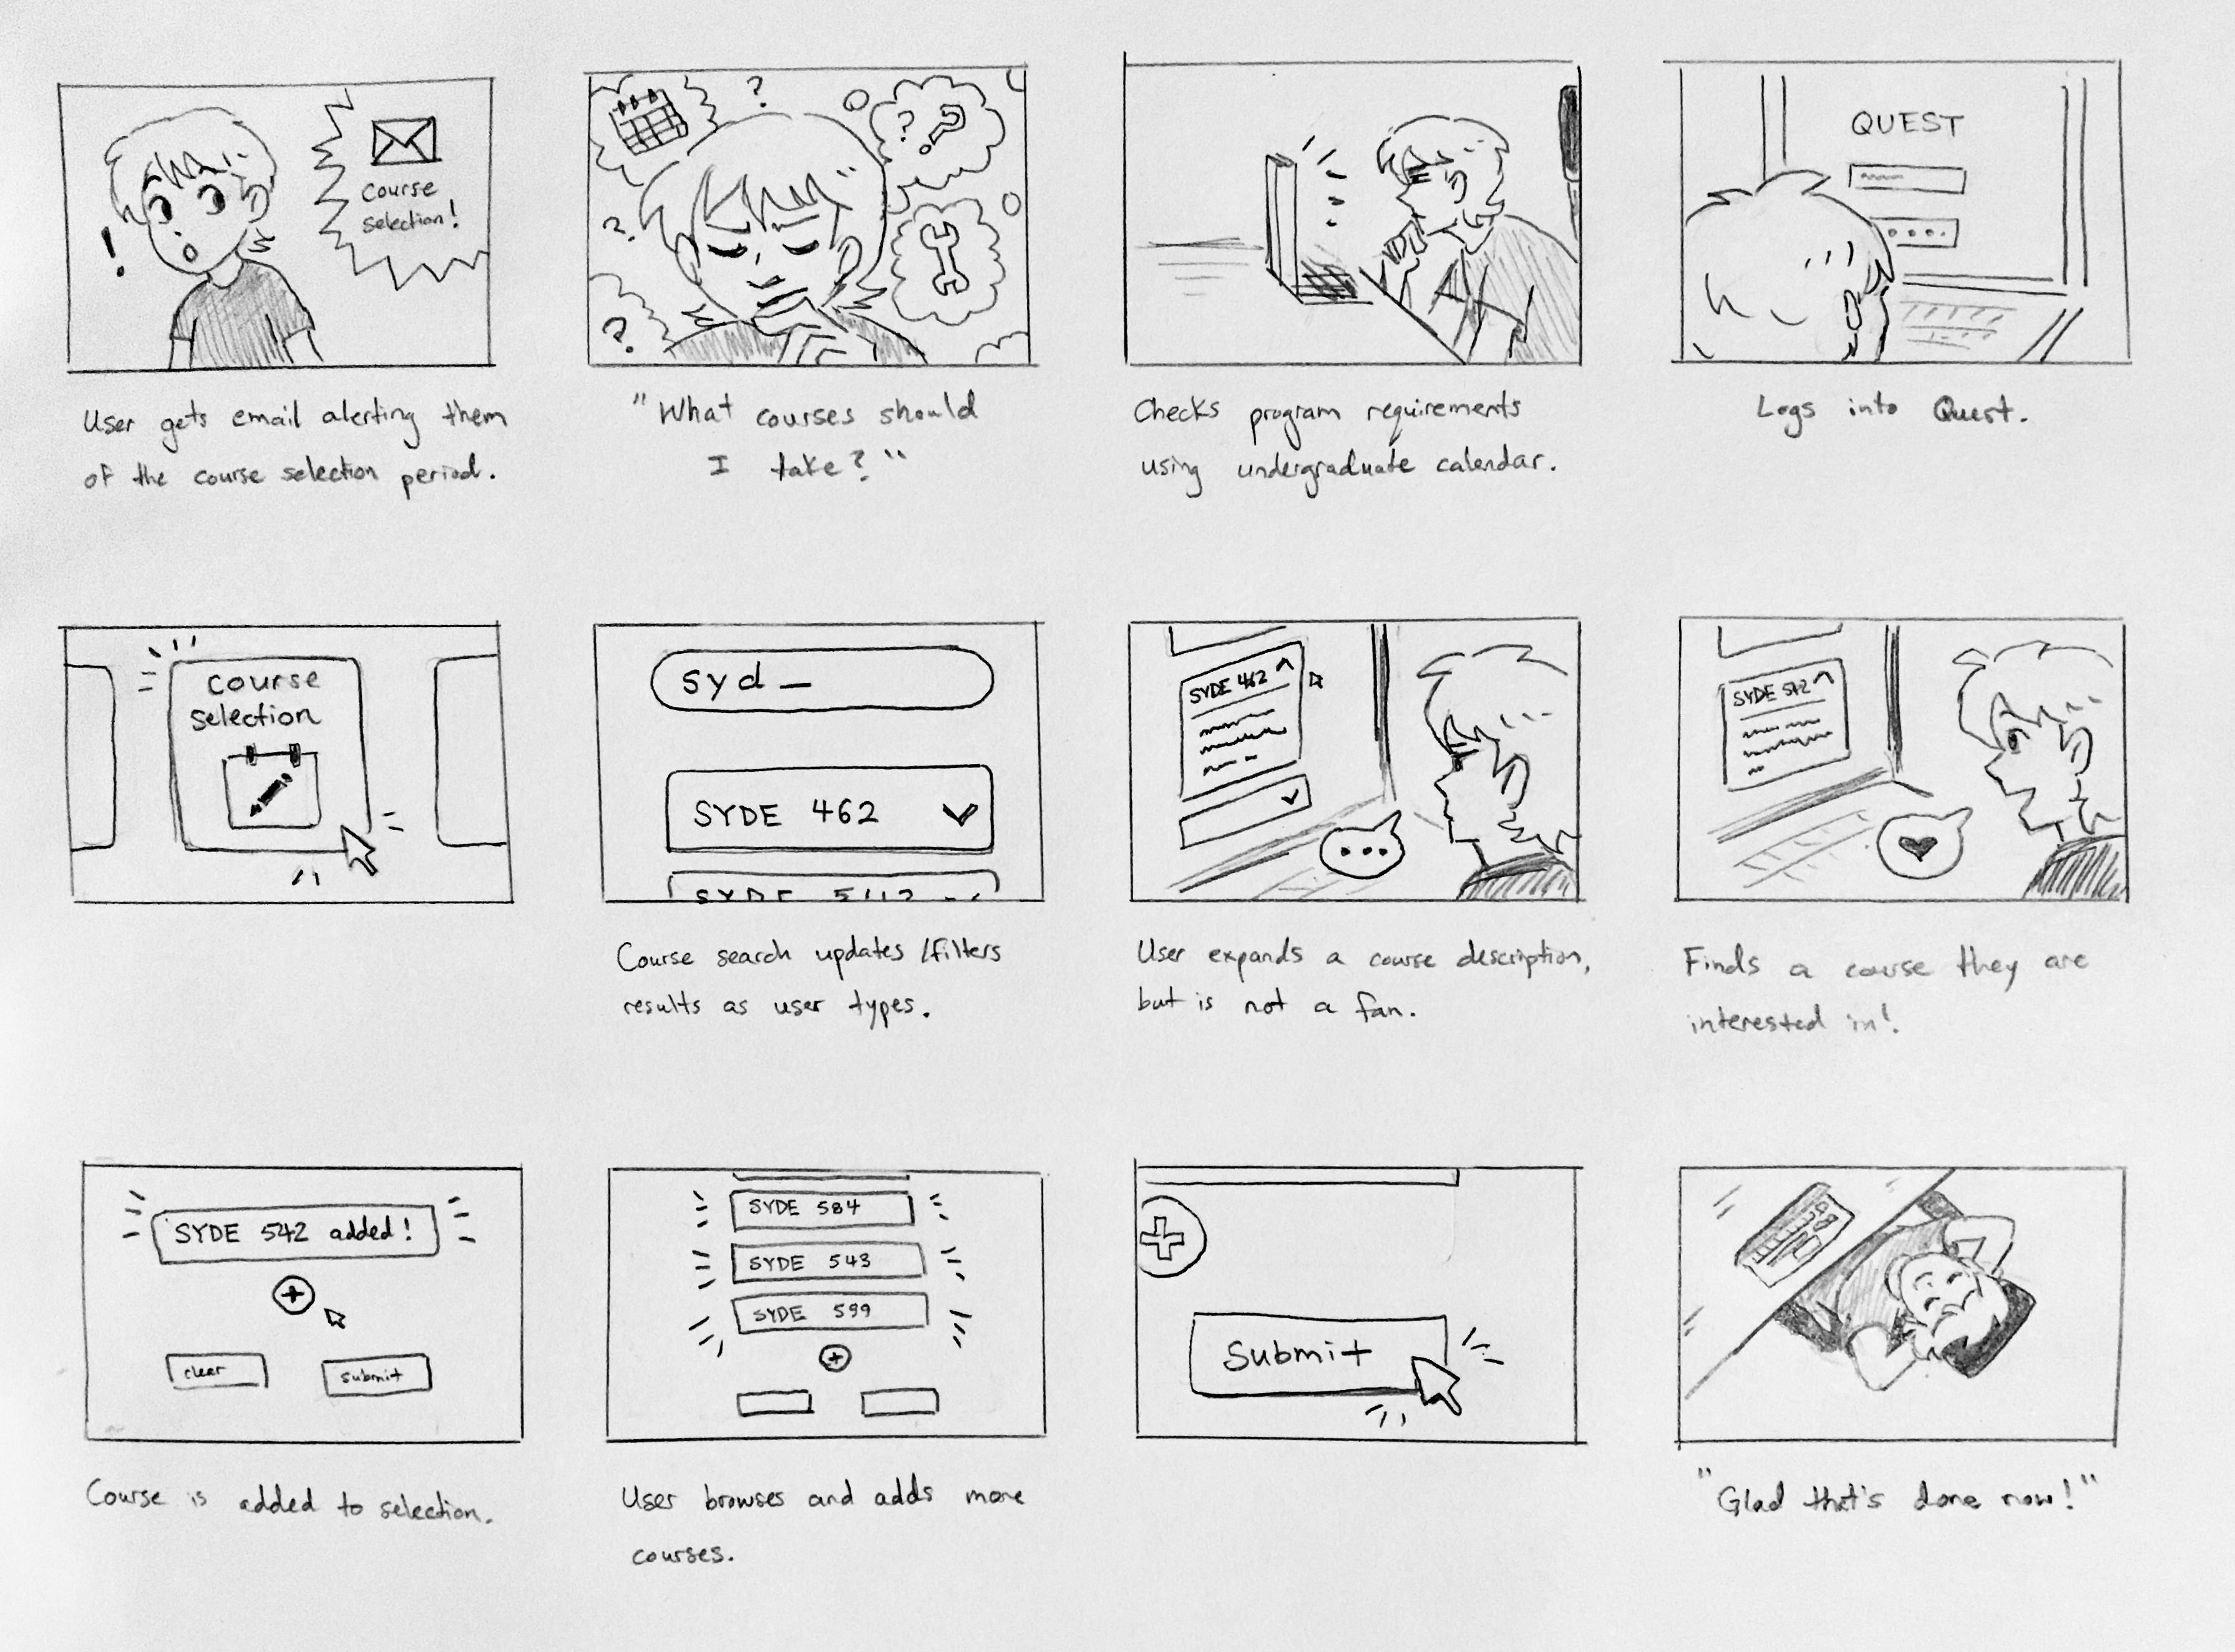 course
selection!
?
?
?
?
!
QUEST
User gets email alerting them
of the course selection period.
"What courses should
I take?"
Checks program requirements
using undergraduate calendar.
Logs into Quest.
course
selection
syd _
SYDE 462
SYDE 462
SYDE 542
Course search updates / filters
results as user types.
User expands a course description,
but is not a fan.
Finds a course they are
interested in!
SYDE 542 added!
clear
submit
SYDE 584
SYDE 543
SYDE 599
Submit
Course is added to selection.
User browses and adds more
courses.
"Glad that's done now!"